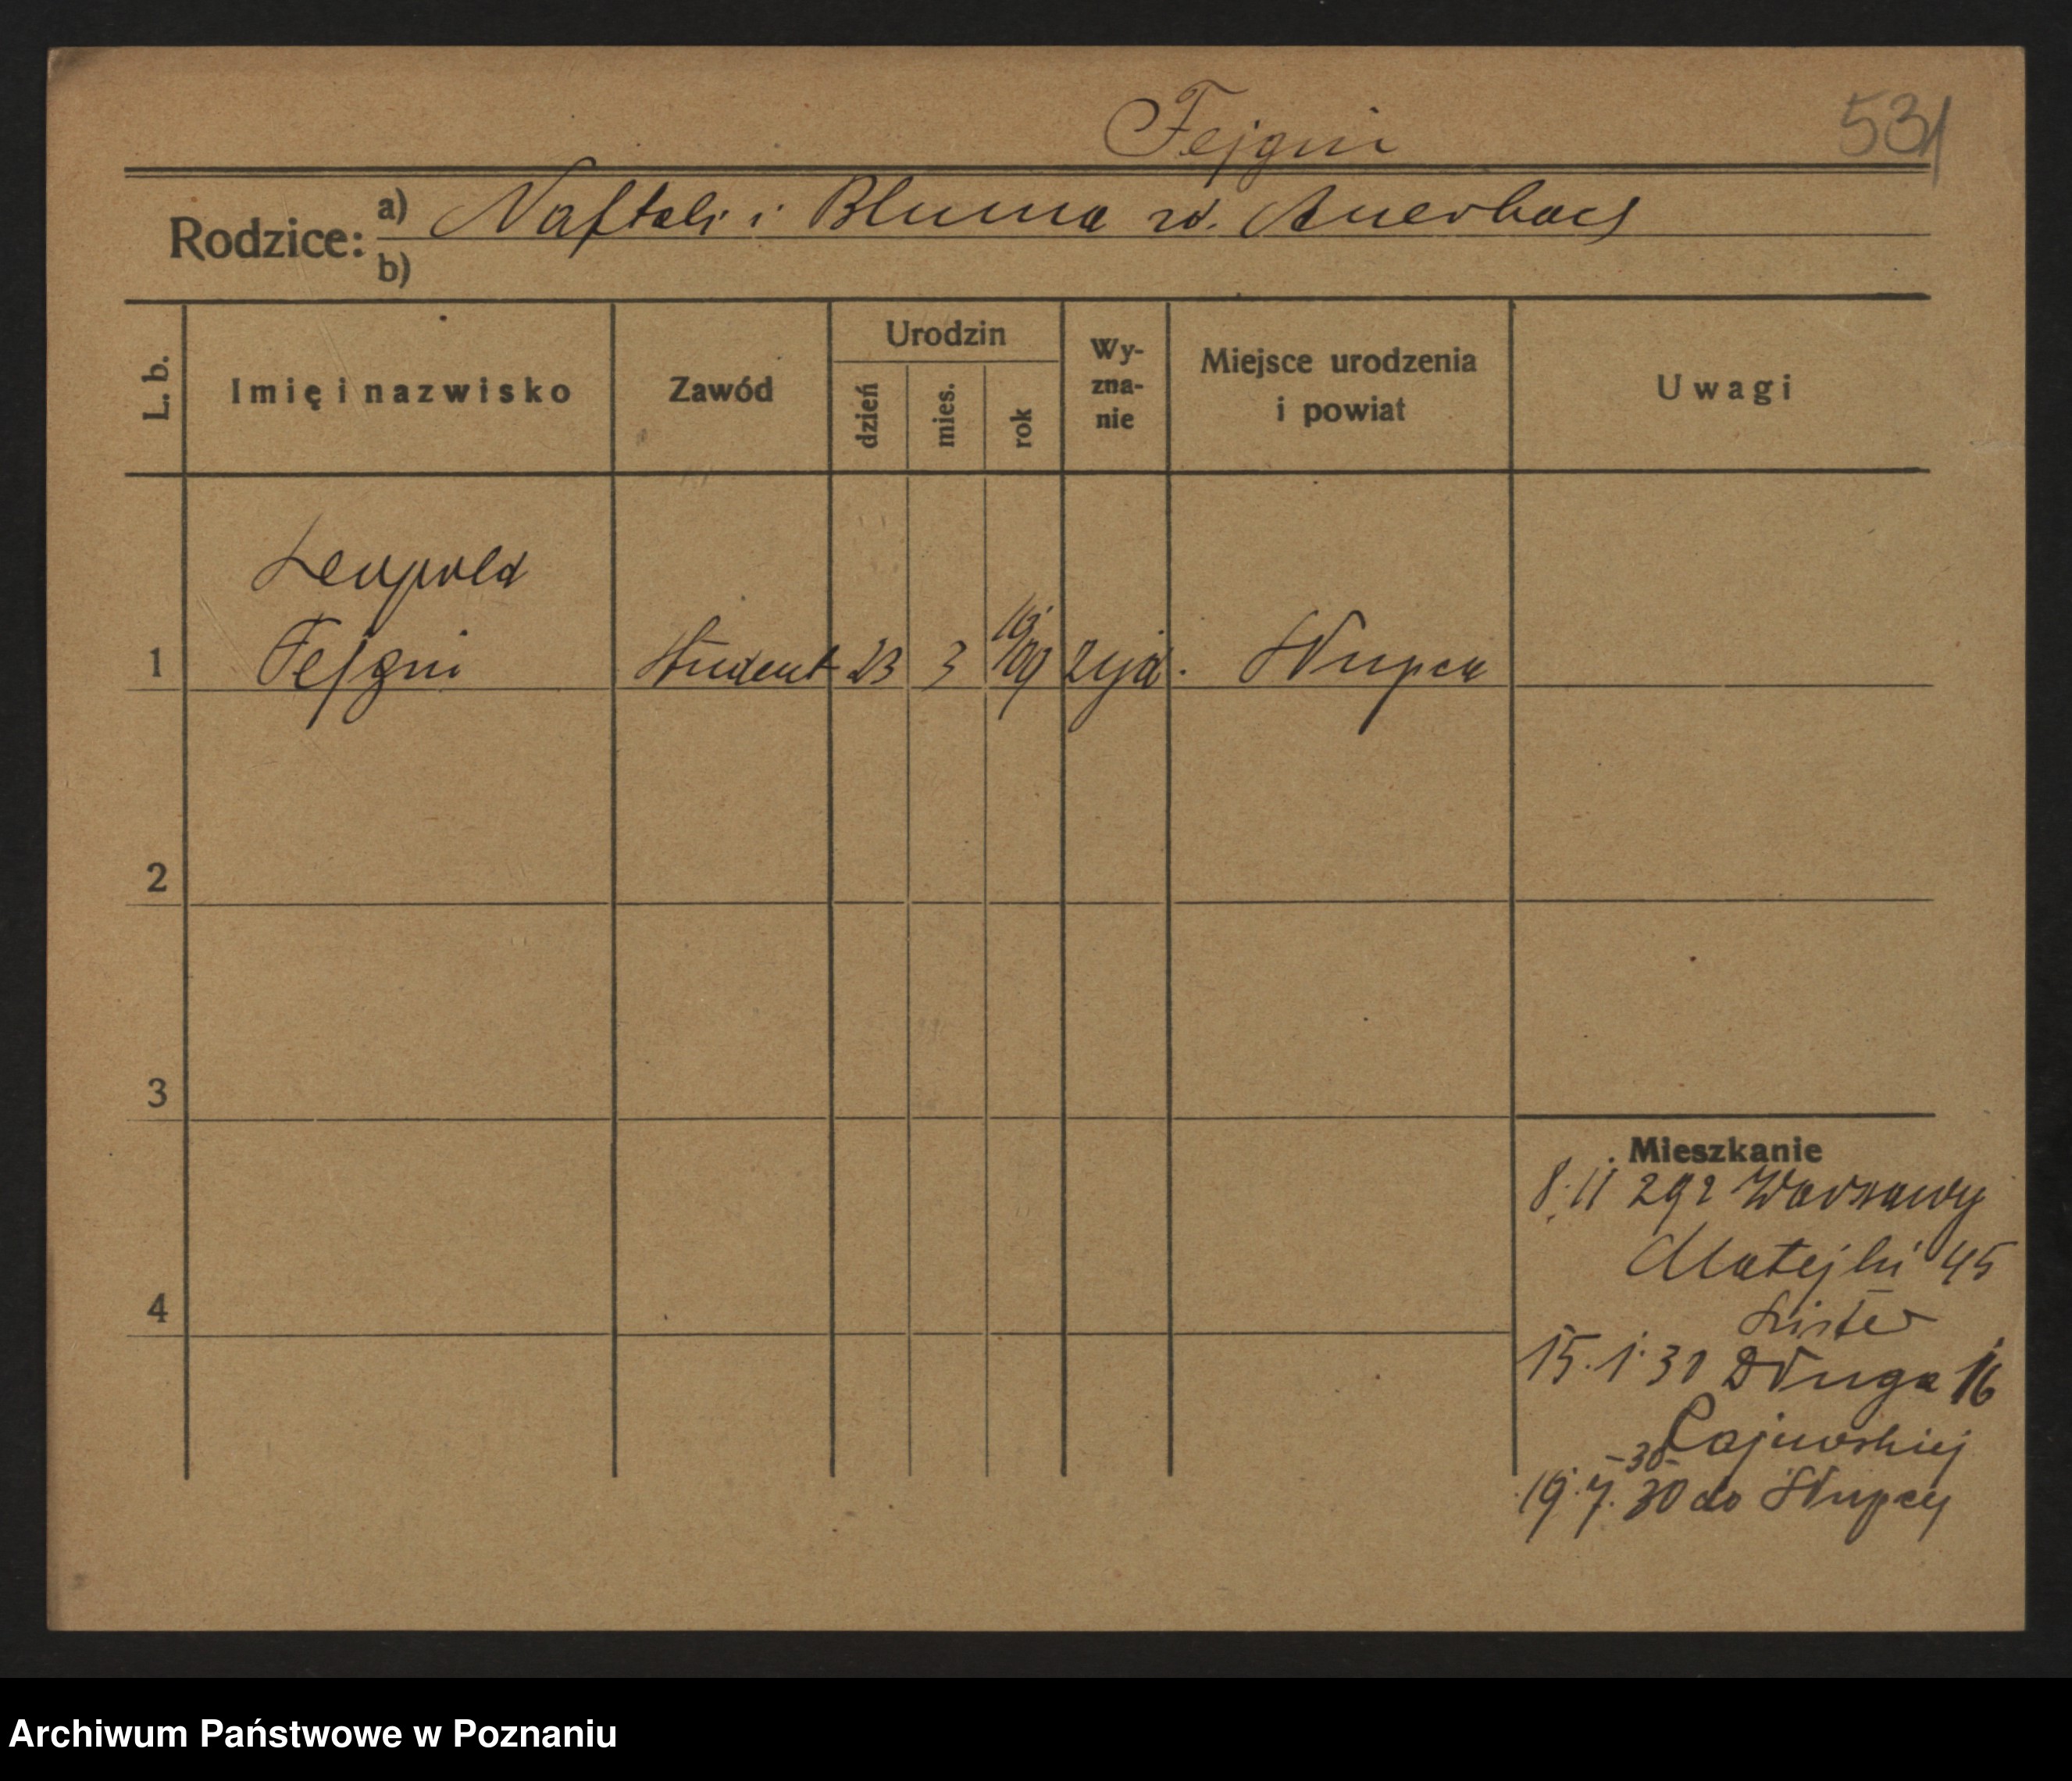 Fejgin
531
Rodzice:
a) Naftali i Bluma zd. Auerbach
b)
L. b.
Imię i nazwisko
Zawód
Urodzin
dzień
mies.
rok
Wy-
zna-
nie
Miejsce urodzenia
i powiat
Uwagi
Leopold
1 Fejgin Student 23 3 1909 żyd. Słupca
2
3
4
Mieszkanie
8.11 29 z Warszawy
Matejki 45
Lister
15.1.30 Długa 16
-30-
19.7.30 do Słupcy
Archiwum Państwowe w Poznaniu